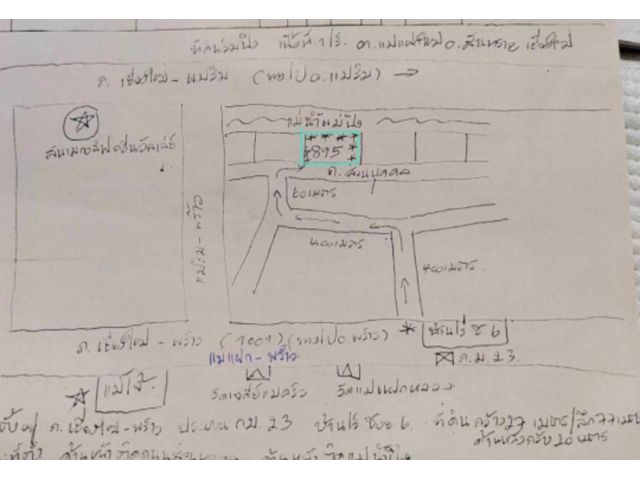 ที่ดินริมปิง เนื้อที่ 1 ไร่. ต.แม่แฝกใหม่ อ.สันทราย เชียงใหม่
ถ. เชียงใหม่ - แม่ริม (ทางไป อ.แม่ริม)
แม่น้ำแม่ปิง
895
สนามกอล์ฟ
ถ. ส่วนบุคคล
60 เมตร
แม่ริม - พร้าว
400 เมตร
400 เมตร
ถ. เชียงใหม่ - พร้าว (1001) (ทางไป อ.พร้าว)
บ้านไร่ ซ. 6
แม่แฝก - พร้าว
ก.ม. 23
แม่โจ้
วัดเจดีย์แม่ครัว
วัดแม่แฝกหลวง
ถ. เชียงใหม่-พร้าว ประมาณ กม. 23 บ้านไร่ ซอย 6 ที่ดิน กว้าง 27 เมตร/ลึก 77 เมตร
ด้านหลังกว้าง 20 เมตร